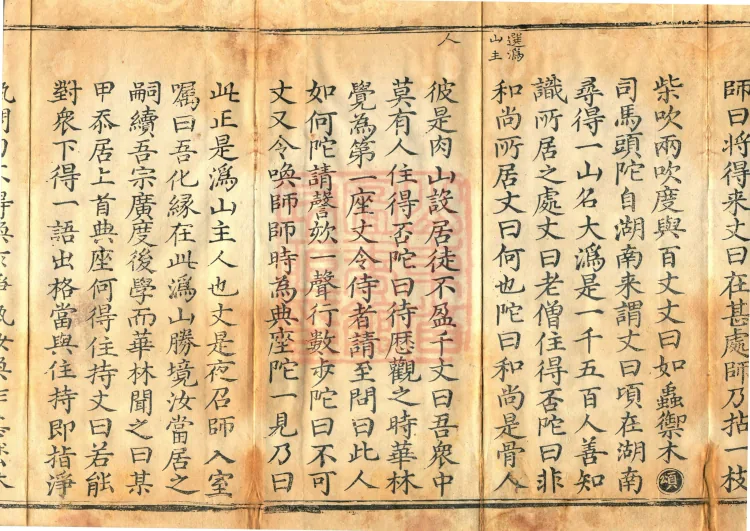 師曰将得来丈曰在甚處師乃拈一枝
柴吹兩吹度與百丈丈曰如蟲禦木頌
司馬頭陀自湖南来謂丈曰頃在湖南
尋得一山名大溈是一千五百人善知
識所居之處丈曰老僧住得否陀曰非
選溈
山主
和尚所居丈曰何也陀曰和尚是骨人
人
彼是肉山設居徒不盈千丈曰吾衆中
莫有人住得否陀曰待歷觀之時華林
覺為第一座丈令侍者請至問曰此人
如何陀請謦欬一聲行數步陀曰不可
丈又令喚師師時為典座陀一見乃曰
此正是溈山主人也丈是夜召師入室
囑曰吾化緣在此溈山勝境汝當居之
嗣續吾宗廣度後學而華林聞之曰某
甲忝居上首典座何得住持丈曰若能
對衆下得一語出格當與住持即指淨